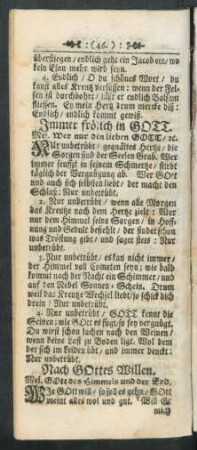 :(46.):
überstiegen / endlich geht ein Jacob ein / wo
kein Esau mehr wird seyn.
4. Endlich / O du schönes Wort / du
kanst alles Kreutz versüssen: wenn der Fel-
sen ist durchbohrt / läst er endlich Balsam
fliessen. Ey mein Hertz drum mercke diß:
Endlich / endlich kommt gewiß.
Immer frölich in GOTT.
Mel. Wer nur den lieben GOTT / ꝛc.
Nur unbetrübt / gequältes Hertze / die
Sorgen sind der Seelen Grab. Wer
immer sincket in seinem Schmertze / stirbt
täglich der Vergnügung ab. Wer GOtt
und auch sich selbsten liebt / der macht den
Schluß: Nur unbetrübt.
2. Nur unbetrübt / wenn alle Morgen
das Kreutze nach dem Hertze zielt: Wer
nur dem Himmel seine Sorgen / in Hoff-
nung und Gedult befiehlt / der findet was
Trost gibt / und saget stets: Nur
unbetrübt.
3. Nur unbetrübt / es kan nicht immer /
der Himmel voll Cometen seyn; wie bald
kommt nach der Nacht ein Schimmer / und
auf den Nebel Sonnen-Schein. Drum
weil das Kreutz Wechsel liebt / so schick dich
drein / Nur unbetrübt.
4. Nur unbetrübt / GOTT kennt die
Seinen; wie GOtt es fügt / so sey vergnügt.
Du wirst schon lachen nach den Weinen /
wenn deine Last zu Boden ligt. Wol dem
der sich im Leiden übt / und immer denckt:
Nur unbetrübt.
Nach GOttes Willen.
Mel. GOtt des Himmels und der Erd.
Wie GOtt will / so soll es gehn / GOtt
meint alles wol und gut. Wil Er
mich